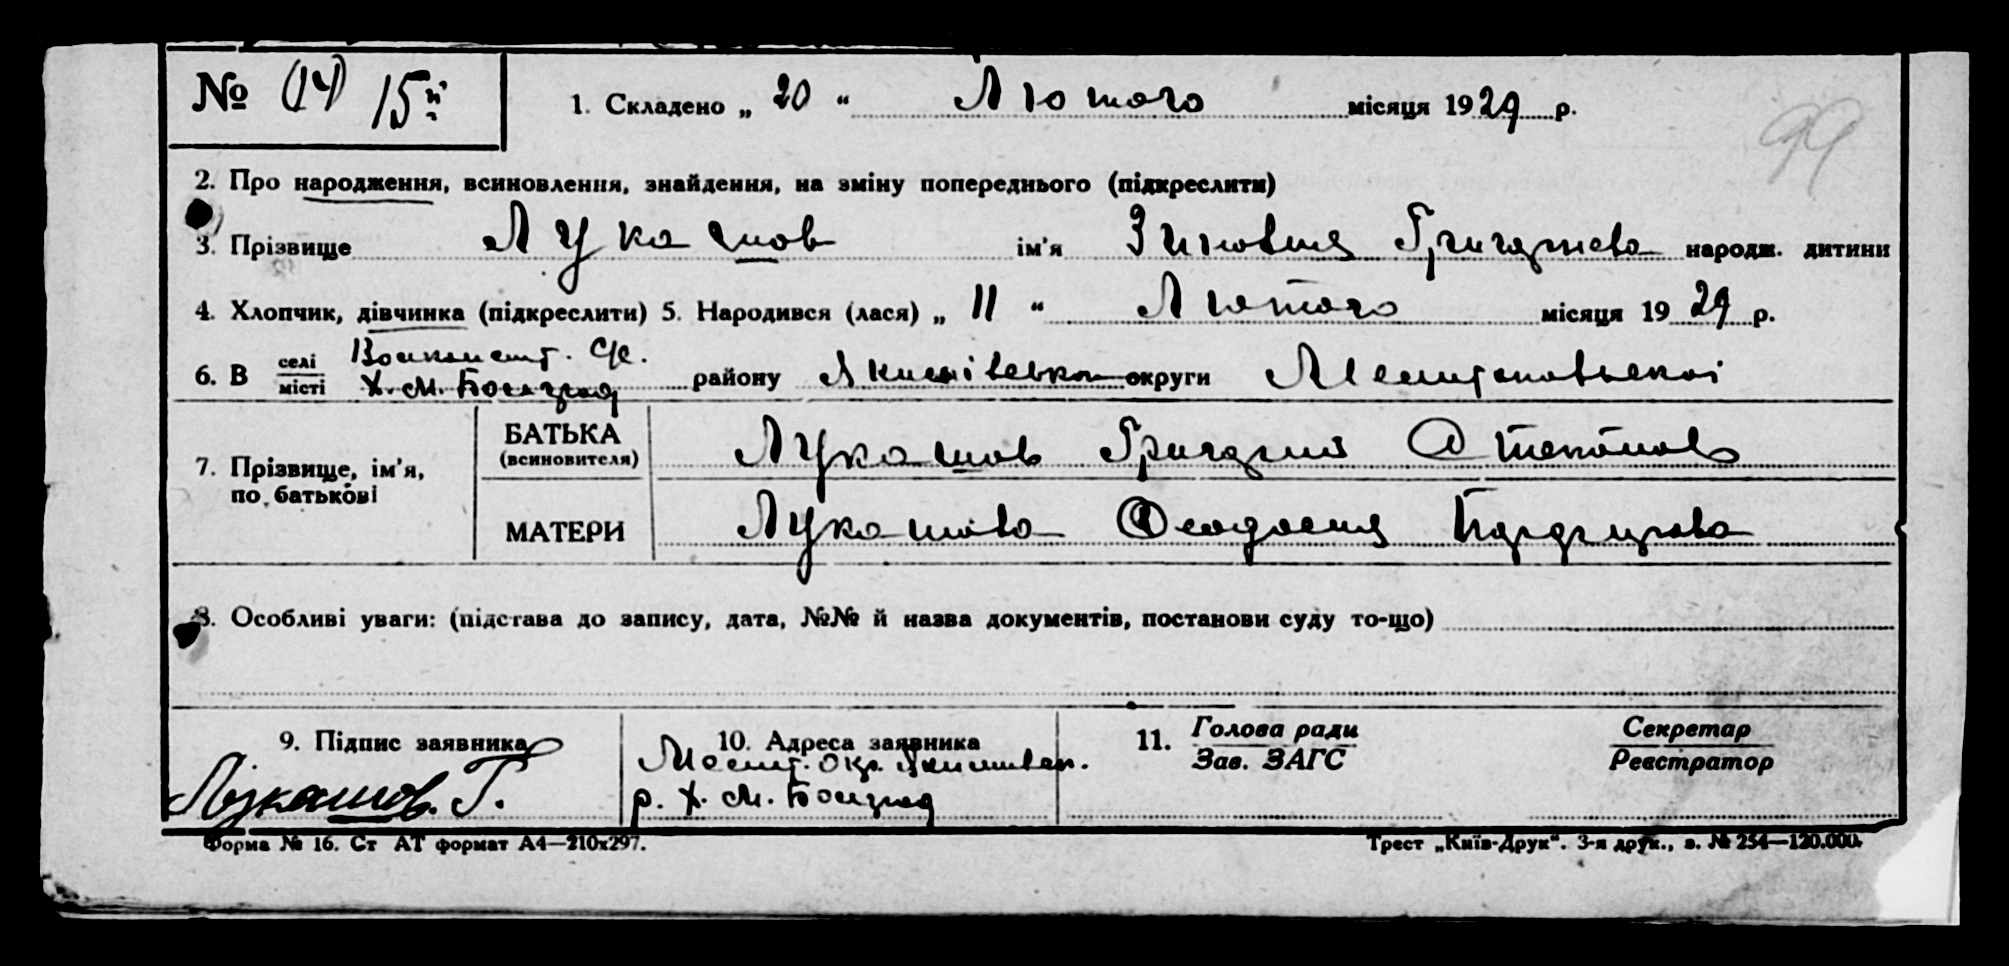 № (14) 15й 1. Складено „ 20 “ Лютого місяця 1929 р.
99
2. Про народження, всиновлення, знайдення, на зміну попереднього (підкреслити)
3. Прізвище Лукашов ім'я Зиновия Григорьева народж. дитини
4. Хлопчик, дівчинка (підкреслити) 5. Народився (лася) „ 11 “ Лютого місяця 1929 р.
6. В селі місті х. М. Богатиря району округи
БАТЬКА
(всиновителя) Лукашов Григорий
7. Прізвище, ім'я,
по батькові
МАТЕРИ Лукашова Феодосия
8. Особливі уваги: (підстава до запису, дата, №№ й назва документів, постанови суду то-що)
9. Підпис заявника 10. Адреса заявника 11. Голова ради Секретар
Зав. ЗАГС Реєстратор
Лукашов. Г. р. х. М.
Форма № 16. Ст АТ формат А4—210х297. Трест „Київ-Друк“. 3-я друк., з. № 254—120.000.